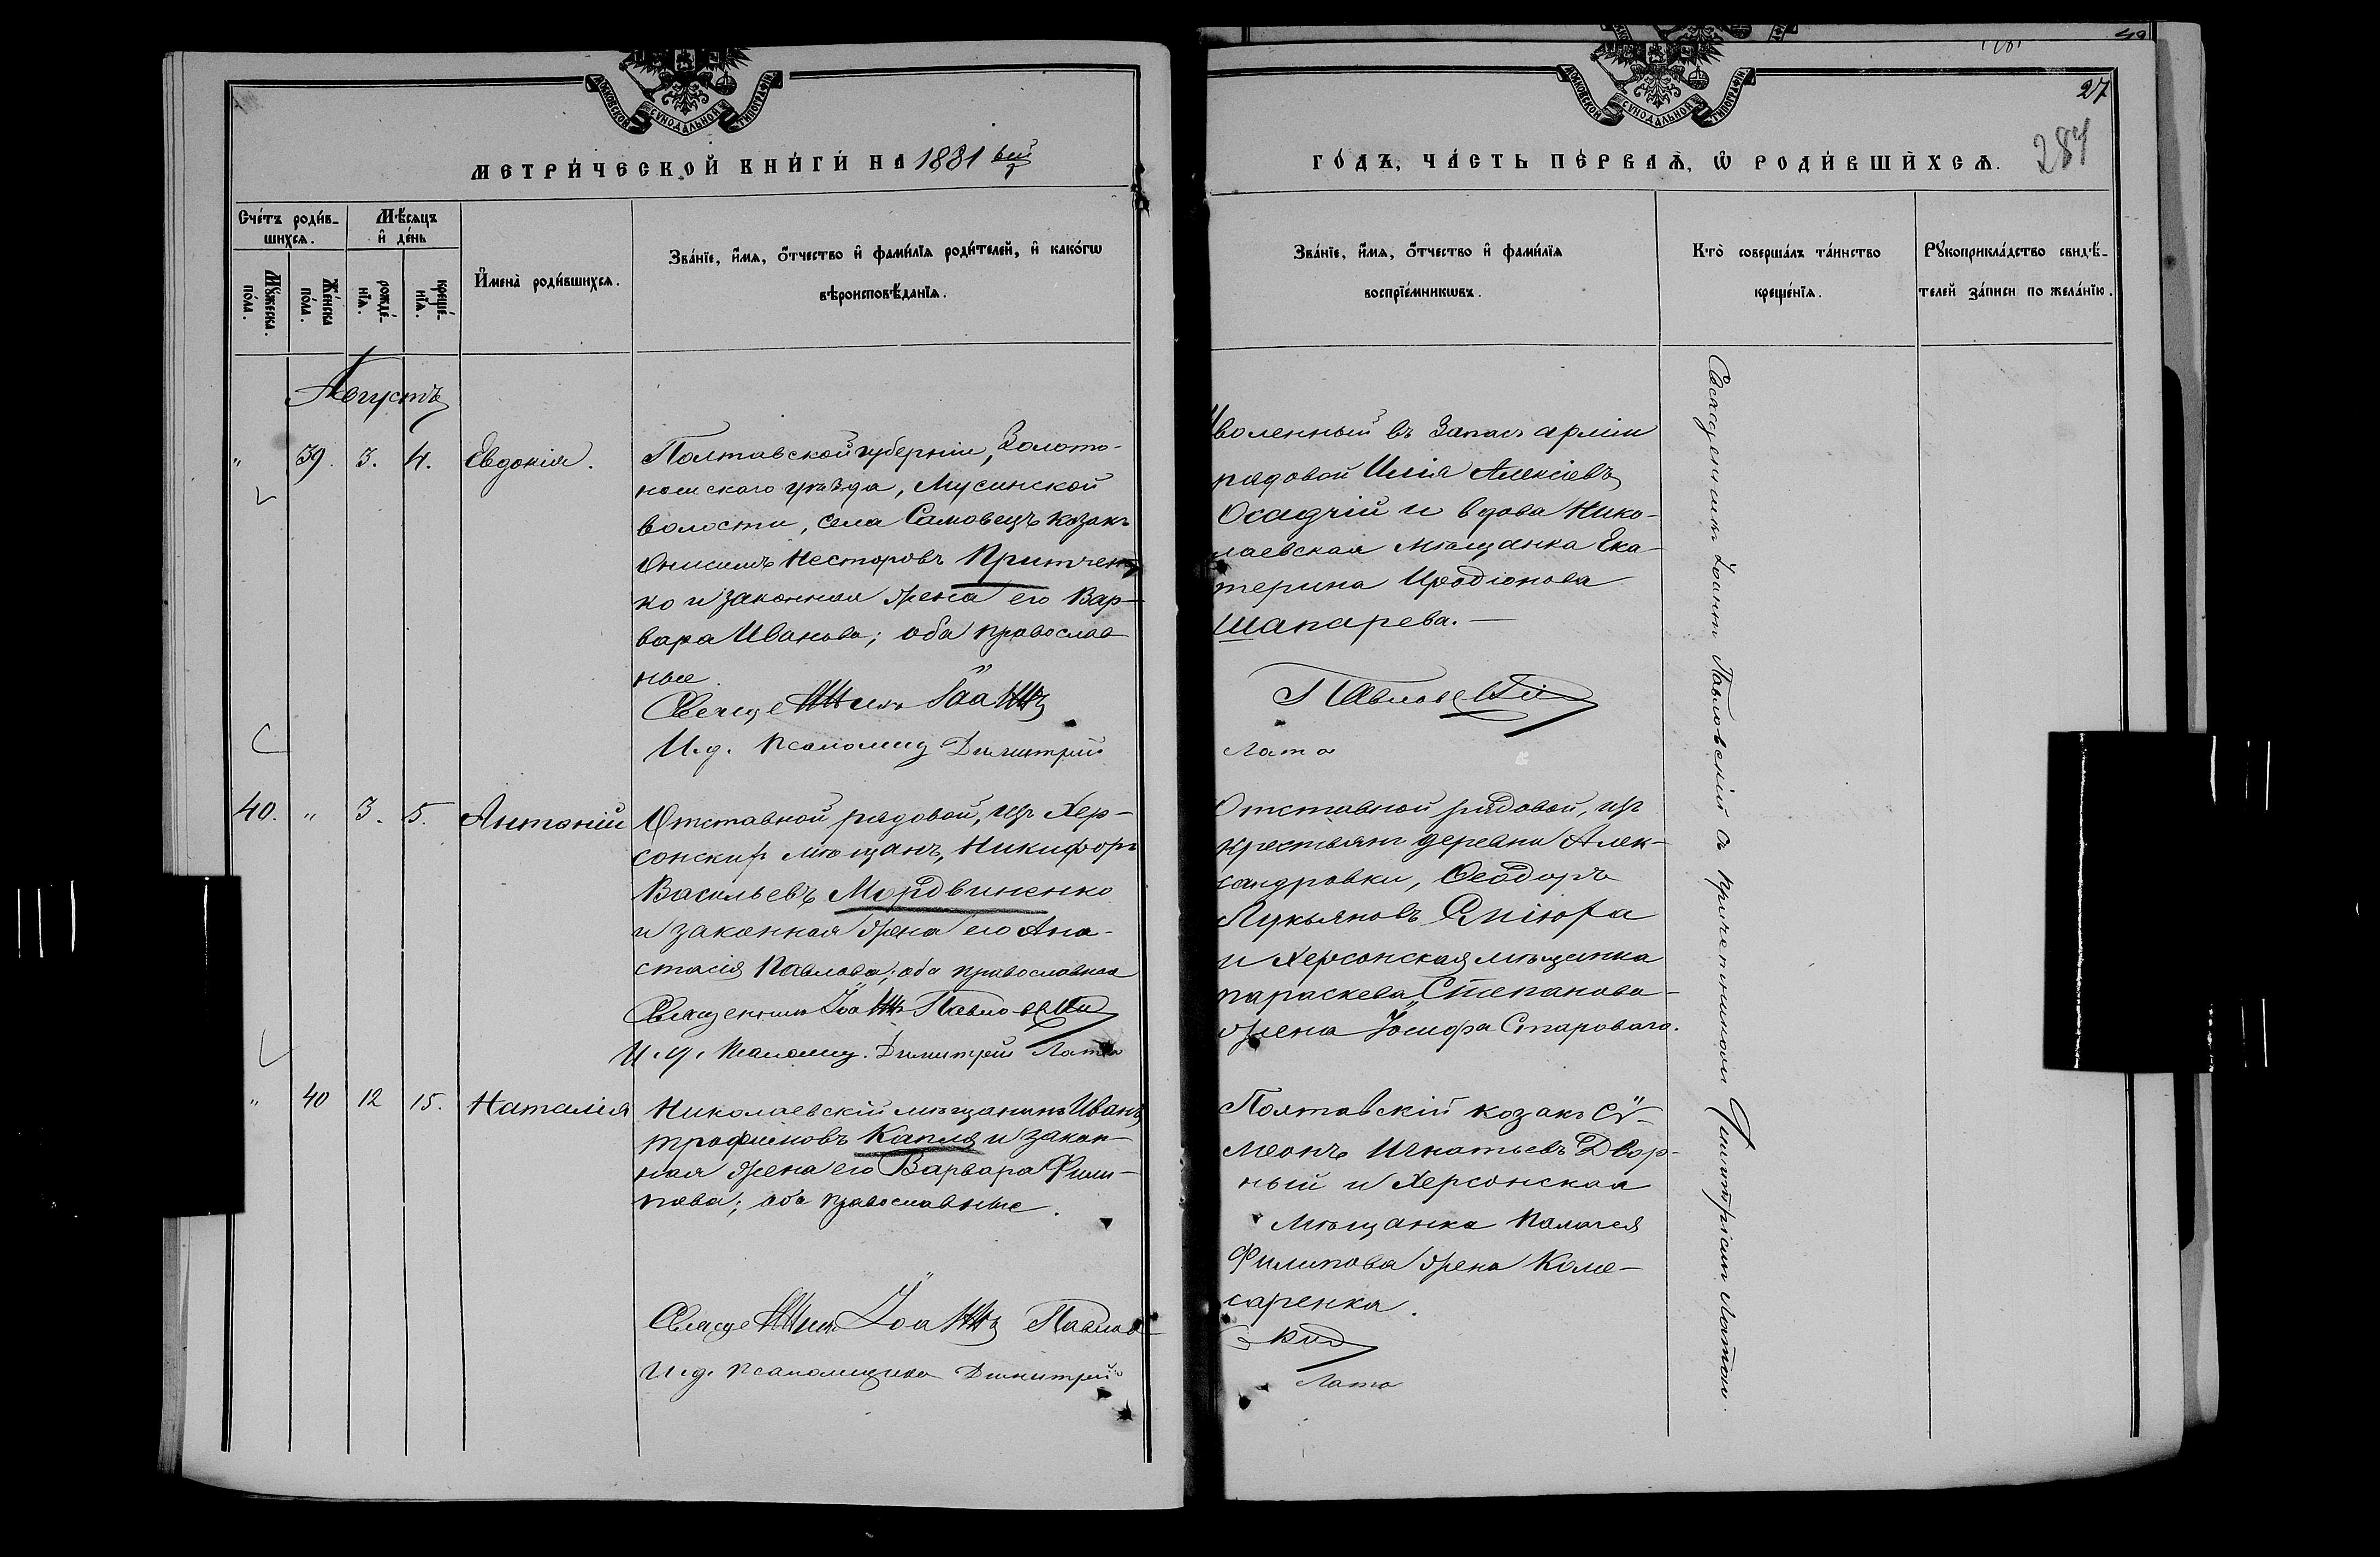 МОСКОВСКОЙ СУНОДАЛЬНОЙ ТИПОГРАФІИ
МЕТРИ́ЧЕСКОЙ КНИ́ГИ НА 1881 вый
Сче́тъ роди́в-
шихсѧ.
Мѣ́сѧцъ
и҆ де́нь
Мꙋ́жеска
по́ла.
Же́нска
по́ла.
рожде́-
нїѧ.
креще́-
нїѧ.
И҆мена̀ роди́вшихсѧ.
Зва́нїе, и҆́мѧ, ѻ҆́тчество и҆ фами́лїѧ роди́телей, и҆ како́гѡ
вѣроисповѣ́данїѧ.
Августъ
" 39. 3. 4. Евдокія.
Полтавской губерніи, Золото-
ношскаго уѣзда,
волости, села козакъ
Онисимъ Несторовъ Притчен-
ко и законная жена его Вар-
вара Иванова; оба православ
ные.
Священникъ Іоаннъ
И. д. псаломщ Димитрій
40. " 3. 5. Антоній
Отставной рядовой, изъ Хер-
сонскихъ мѣщанъ, Никифоръ
Васильевъ Мордвиненко
и законная жена его Ана-
стасія Павлова; оба православная
Священникъ Іоаннъ Павловскій
И. д. псаломщ. Димитрій Лата
" 40 12 15. Наталія
Николаевскій мѣщанинъ Иванъ
Трофимовъ Капля и закон-
ная жена его Варвара Фили-
пова; оба православные.
Священникъ Іоаннъ Павлов-
И. д. псаломщика Димитрій
МОСКОВСКОЙ СУНОДАЛЬНОЙ ТИПОГРАФІИ
27
284
ГО́ДЪ, ЧА́СТЬ ПЕ́РВАѦ, Ѡ҆ РОДИ́ВШИХСѦ.
Зва́нїе, и҆́мѧ, ѻ҆́тчество и҆ фами́лїѧ
воспрїе́мникѡвъ.
Кто̀ соверша́лъ та́инство
креще́нїѧ.
Рꙋкоприкла́дство свидѣ́-
телей за́писи по жела́нїю.
Уволенный въ запасъ арміи
рядовой Илія Алексіевъ
Осадчій и вдова Нико-
лаевская мѣщанка Ека-
терина Иродіонова
Шапарева.—
Павловскій
Лата
Отставной рядовой, изъ
крестьянъ деревни Алек-
сандровки, Ѳеодоръ
Лукьяновъ
и Херсонская мѣщанка
Параскева Степанова
жена Іосифа Староваго.
Полтавскій козакъ Сѵ-
меонъ Игнатьевъ Двор-
ный и Херсонская
мѣщанка Палагея
Филипова жена Коме-
саренка.
скій
Лата
Священникъ Іоаннъ Павловскій съ причетникомъ Димитріемъ Латою.